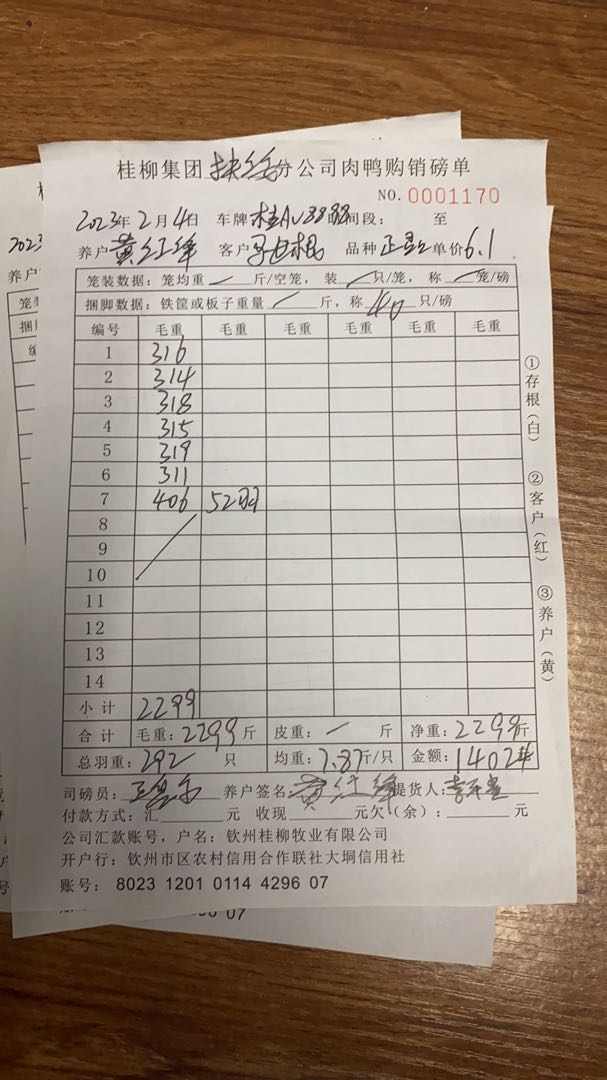 桂柳集团扶绥分公司肉鸭购销磅单
NO. 0001170
2023年2月4日 车牌桂AV3898 时间段: 至
养户黄红锋 客户 品种 单价6.1
笼装数据: 笼均重/斤/空笼, 装/只/笼, 称/笼/磅
捆脚数据: 铁筐或板子重量/斤, 称40只/磅
编号 毛重 毛重 毛重 毛重 毛重 毛重
1 316
2 314
3 318
4 315
5 319
6 311
7 406 52羽
8
9
10
11
12
13
14
小计 2299
合计 毛重:2299斤 皮重:/斤 净重:2299斤
总羽重:292只 均重:7.87斤/只 金额:14024
司磅员: 养户签名:黄红锋 提货人:
付款方式: 汇 元 收现 元欠(余): 元
公司汇款账号, 户名: 钦州桂柳牧业有限公司
开户行: 钦州市区农村信用合作联社大垌信用社
账号: 8023 1201 0114 4296 07
①存根(白)
②客户(红)
③养户(黄)